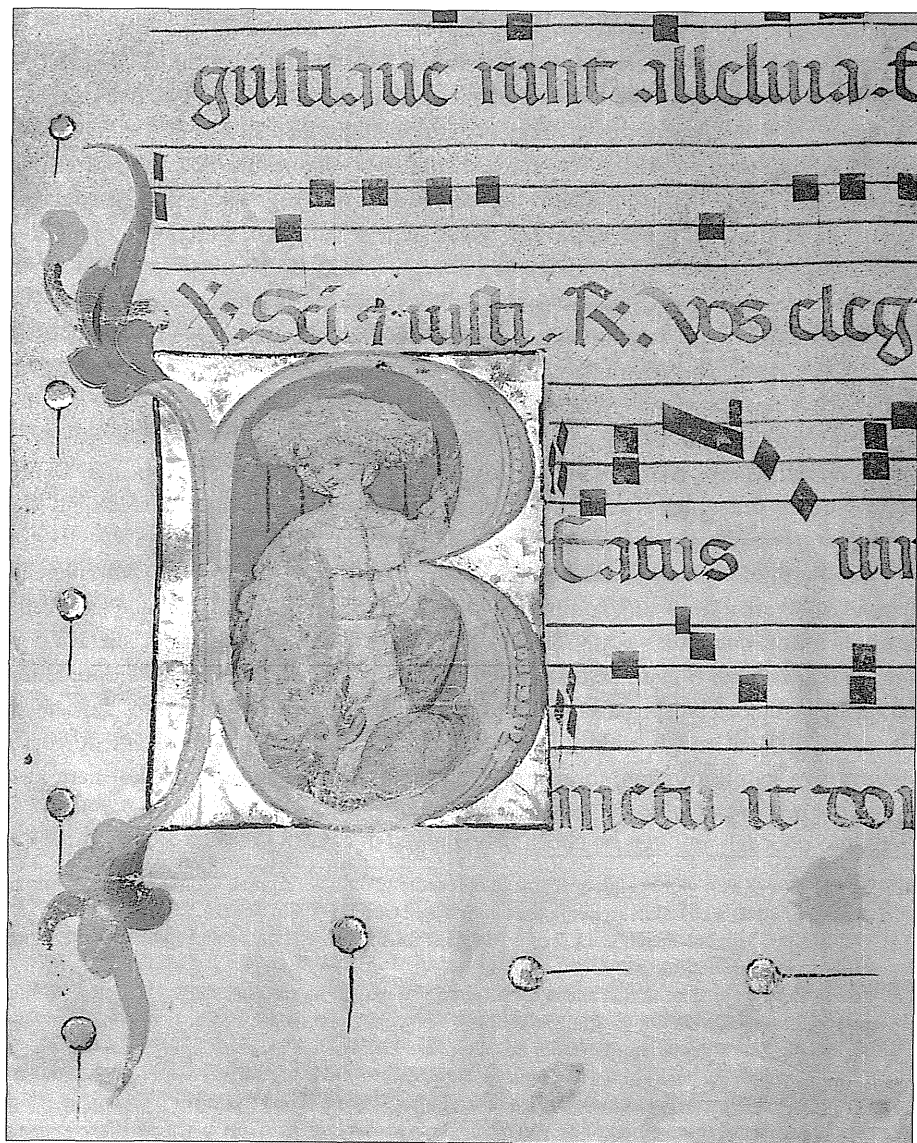 gustiaue runt alleluia. E
℣. Sci ⁊ iusti. ℟. Vos eleg
B Eatus uir
sanctu it do